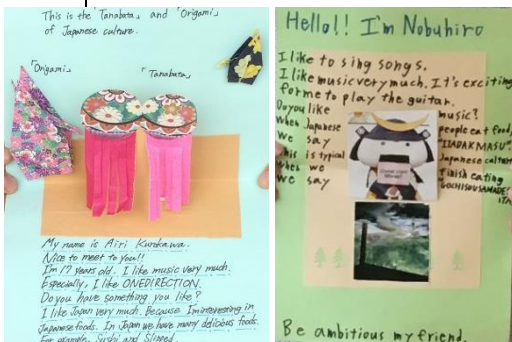 This is the "Tanabata" and "Origami"
of Japanese culture.
「Origami」
「Tanabata」
My name is Airi Kurokawa.
Nice to meet to you!!
I'm 17 years old. I like music very much.
Especially, I like ONEDIRECTION.
Do you have something you like?
I like Japan very much. Because I'm interesting in
Japanese foods. In Japan we have many delicious foods.
For example, Sushi and
Hello!! I'm Nobuhiro
I like to sing songs.
I like music very much. It's exciting
for me to play the guitar.
Do you like music?
When Japanese people eat food,
We say "ITADAKMASU".
This is typical Japanese culture
when we finish eating
we say "GOCHISOUSAMADE
Be ambitious my friend.